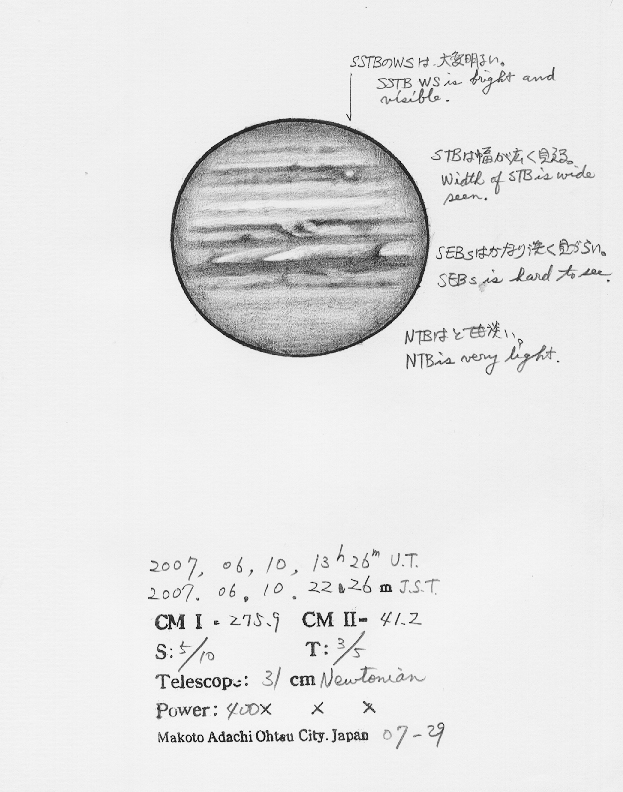 SSTBのWSは、大変明るい。
SSTB WS is bright and
visible.
STBは幅が広く見える。
Width of STB is wide
seen.
SEBsはかなり淡く見づらい。
SEBs is hard to see.
NTBはとても淡い。
NTB is very light.
2007, 06, 10, 13h 26m U.T.
2007. 06. 10. 22h26m J.S.T.
CM I = 275.9 CM II= 41.2
S: 5/10 T: 3/5
Telescope: 31 cm Newtonian
Power: 400X X X
Makoto Adachi Ohtsu City. Japan 07-29